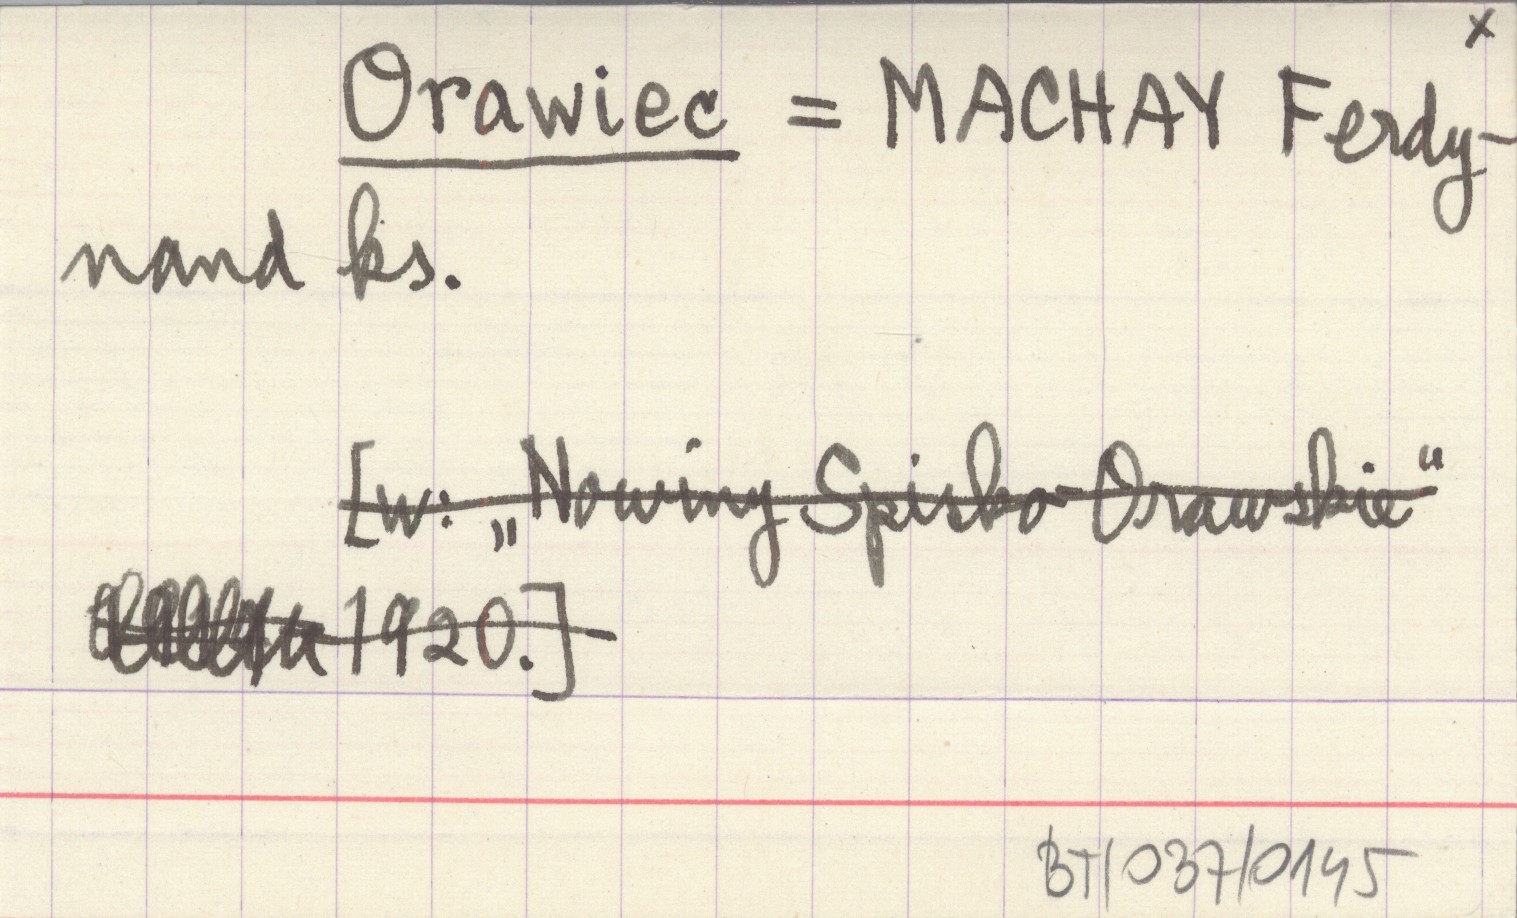 x
Orawiec = MACHAY Ferdy-
nand ks.
[w: „Nowiny Spisko-Orawskie"
1920.]
BT/037/0145